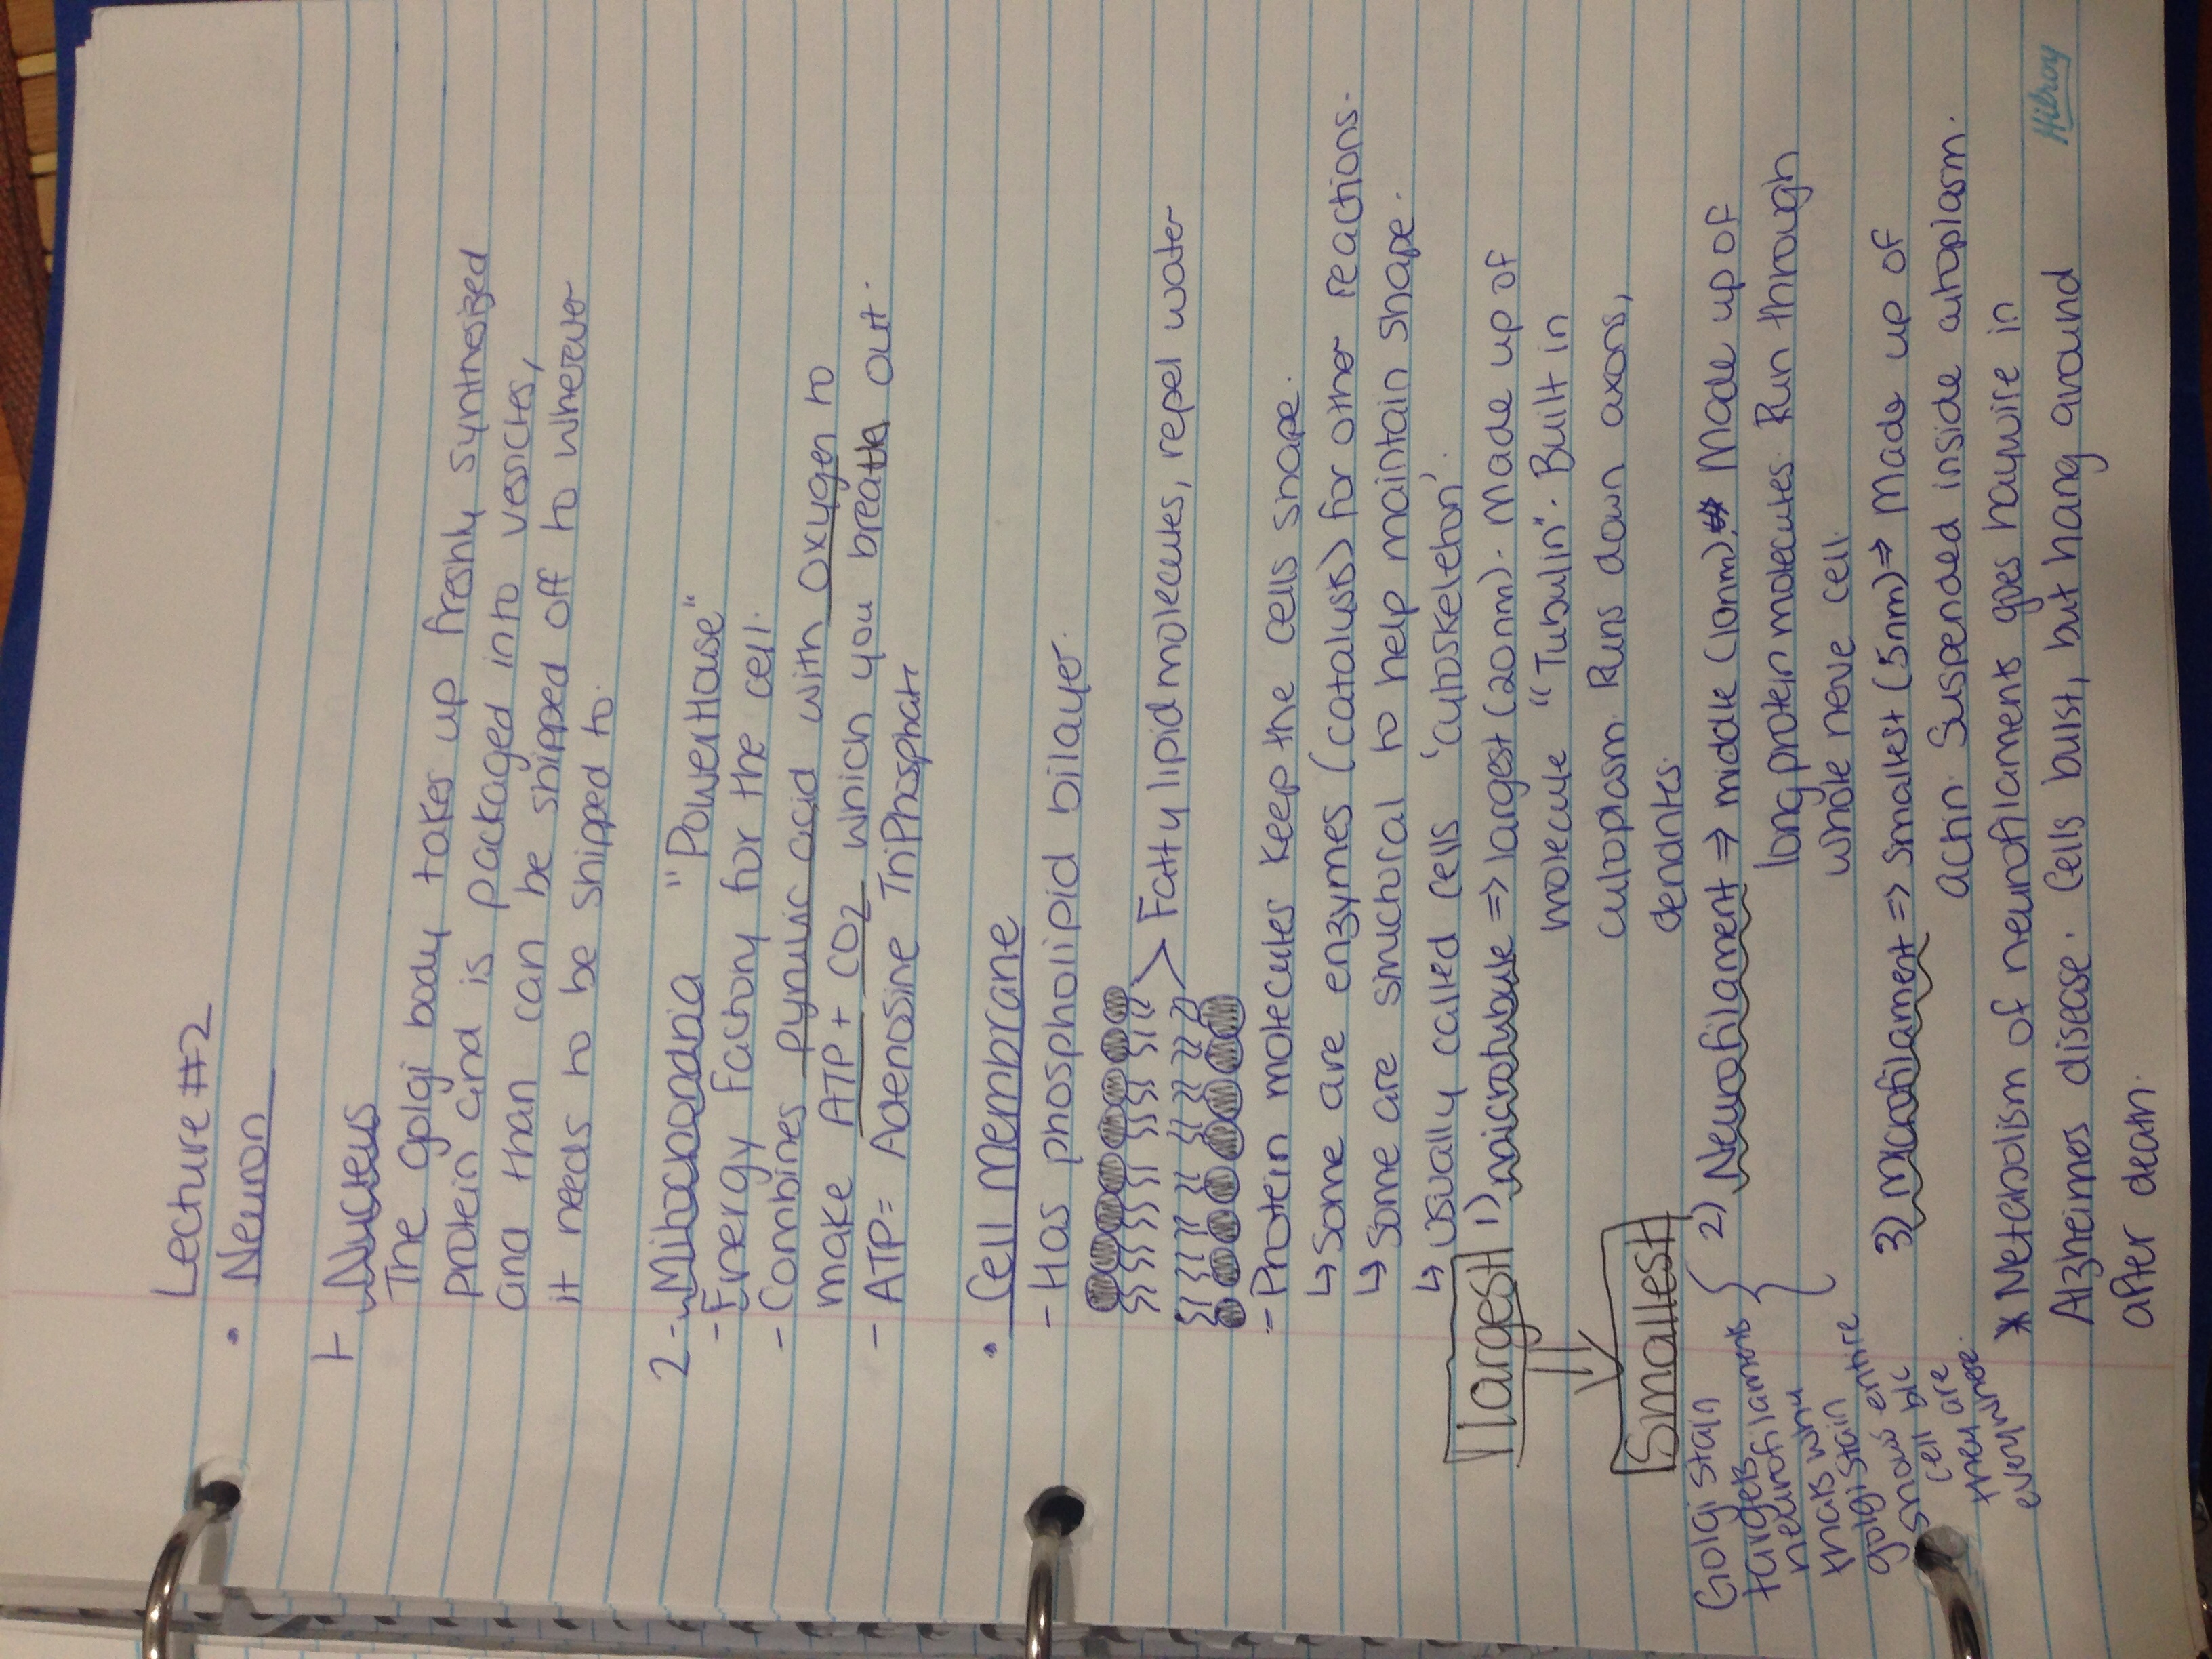 Lecture #2
• Neuron
1- Nucleus
The golgi body takes up freshly synthesized
protein and is packaged into vesicles,
and than can be shipped off to wherever
it needs to be shipped to.
2- Mitochondria "PowerHouse"
- Energy factory for the cell.
- Combines pyruvic acid with oxygen to
make ATP + CO2 which you breath out.
- ATP = Adenosine TriPhosphate
• Cell Membrane
- Has phospholipid bilayer.
> Fatty lipid molecules, repel water
- Protein molecules keep the cells shape.
↳ Some are enzymes (catalysts) for other reactions.
↳ Some are structural to help maintain shape.
↳ usually called cells 'cytoskeleton'.
largest 1) microtubule ⇒ largest (20nm). Made up of
molecule "Tubulin". Built in
cytoplasm. Runs down axons,
dendrites.
⇓
Smallest
2) Neurofilament ⇒ middle (10nm). Made up of
long protein molecules. Run through
whole nerve cell.
Golgi stain
targets
neurofilaments
thats why
golgi stain
shows entire
cell b/c
they are
everywhere.
3) Microfilament ⇒ smallest (5nm) ⇒ Made up of
actin. Suspended inside cytoplasm.
* Metabolism of neurofilaments goes haywire in
Alzheimes disease. Cells bust, but hang around
after death.
Hilroy